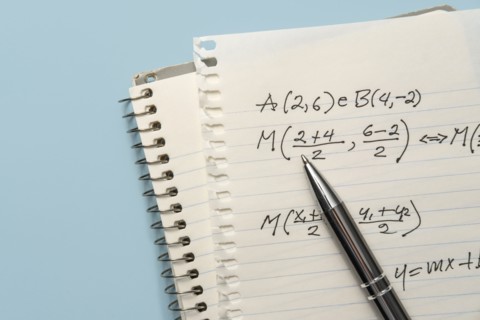 A(2,6) e B(4,-2)
M(2+4/2, 6-2/2) <=> M(
M(x₁+ y₁+y₂/2)
y=mx+